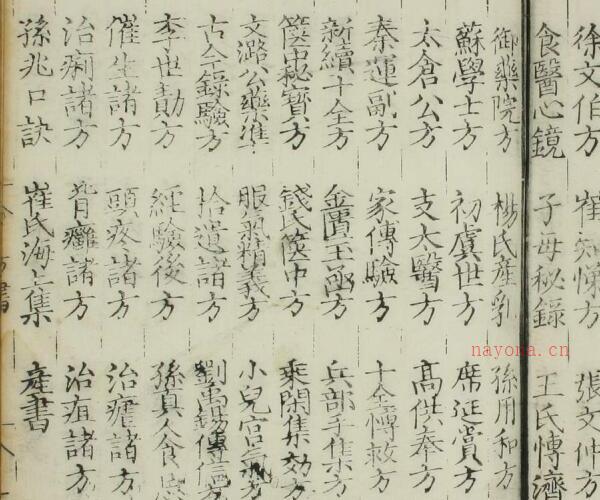 徐文伯方 崔知悌方 張文仲方
食醫心鏡 子母秘錄 王氏博濟
御藥院方 楊氏產乳 孫用和方
蘇學士方 初虞世方 席延賞方
太倉公方 支太醫方 高供奉方
秦運副方 家傳驗方 十全博救方
新續十全方 金匱玉函方 兵部手集方
篋中秘寶方 錢氏篋中方 乘閑集効方
文潞公藥準 服氣精義方 小兒宮氣方
古今錄驗方 拾遺諸方 劉禹錫傳信方
李世勣方 經驗後方 孫真人食忌
催生諸方 頭疼諸方 治瘧諸方
治痢諸方 背癰諸方 治疽諸方
孫兆口訣 崔氏海上集 產書
nayona.cn